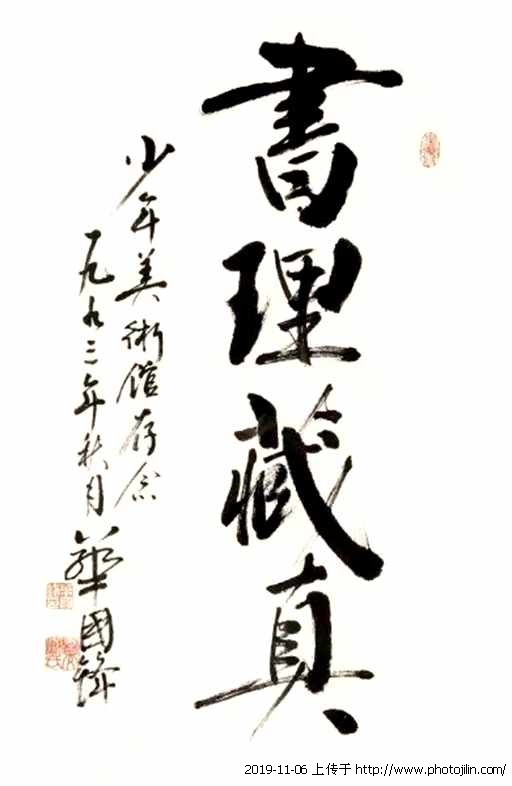 書理藏真
少年美術館存念
一九九三年秋月
華國鋒
2019-11-06 上传于 http://www.photojilin.com/